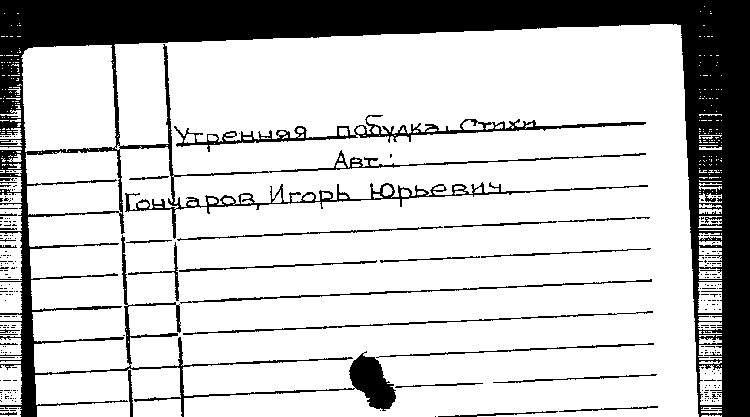 Утренняя побудка. Стихи.
Авт.:
Гончаров, Игорь Юрьевич.